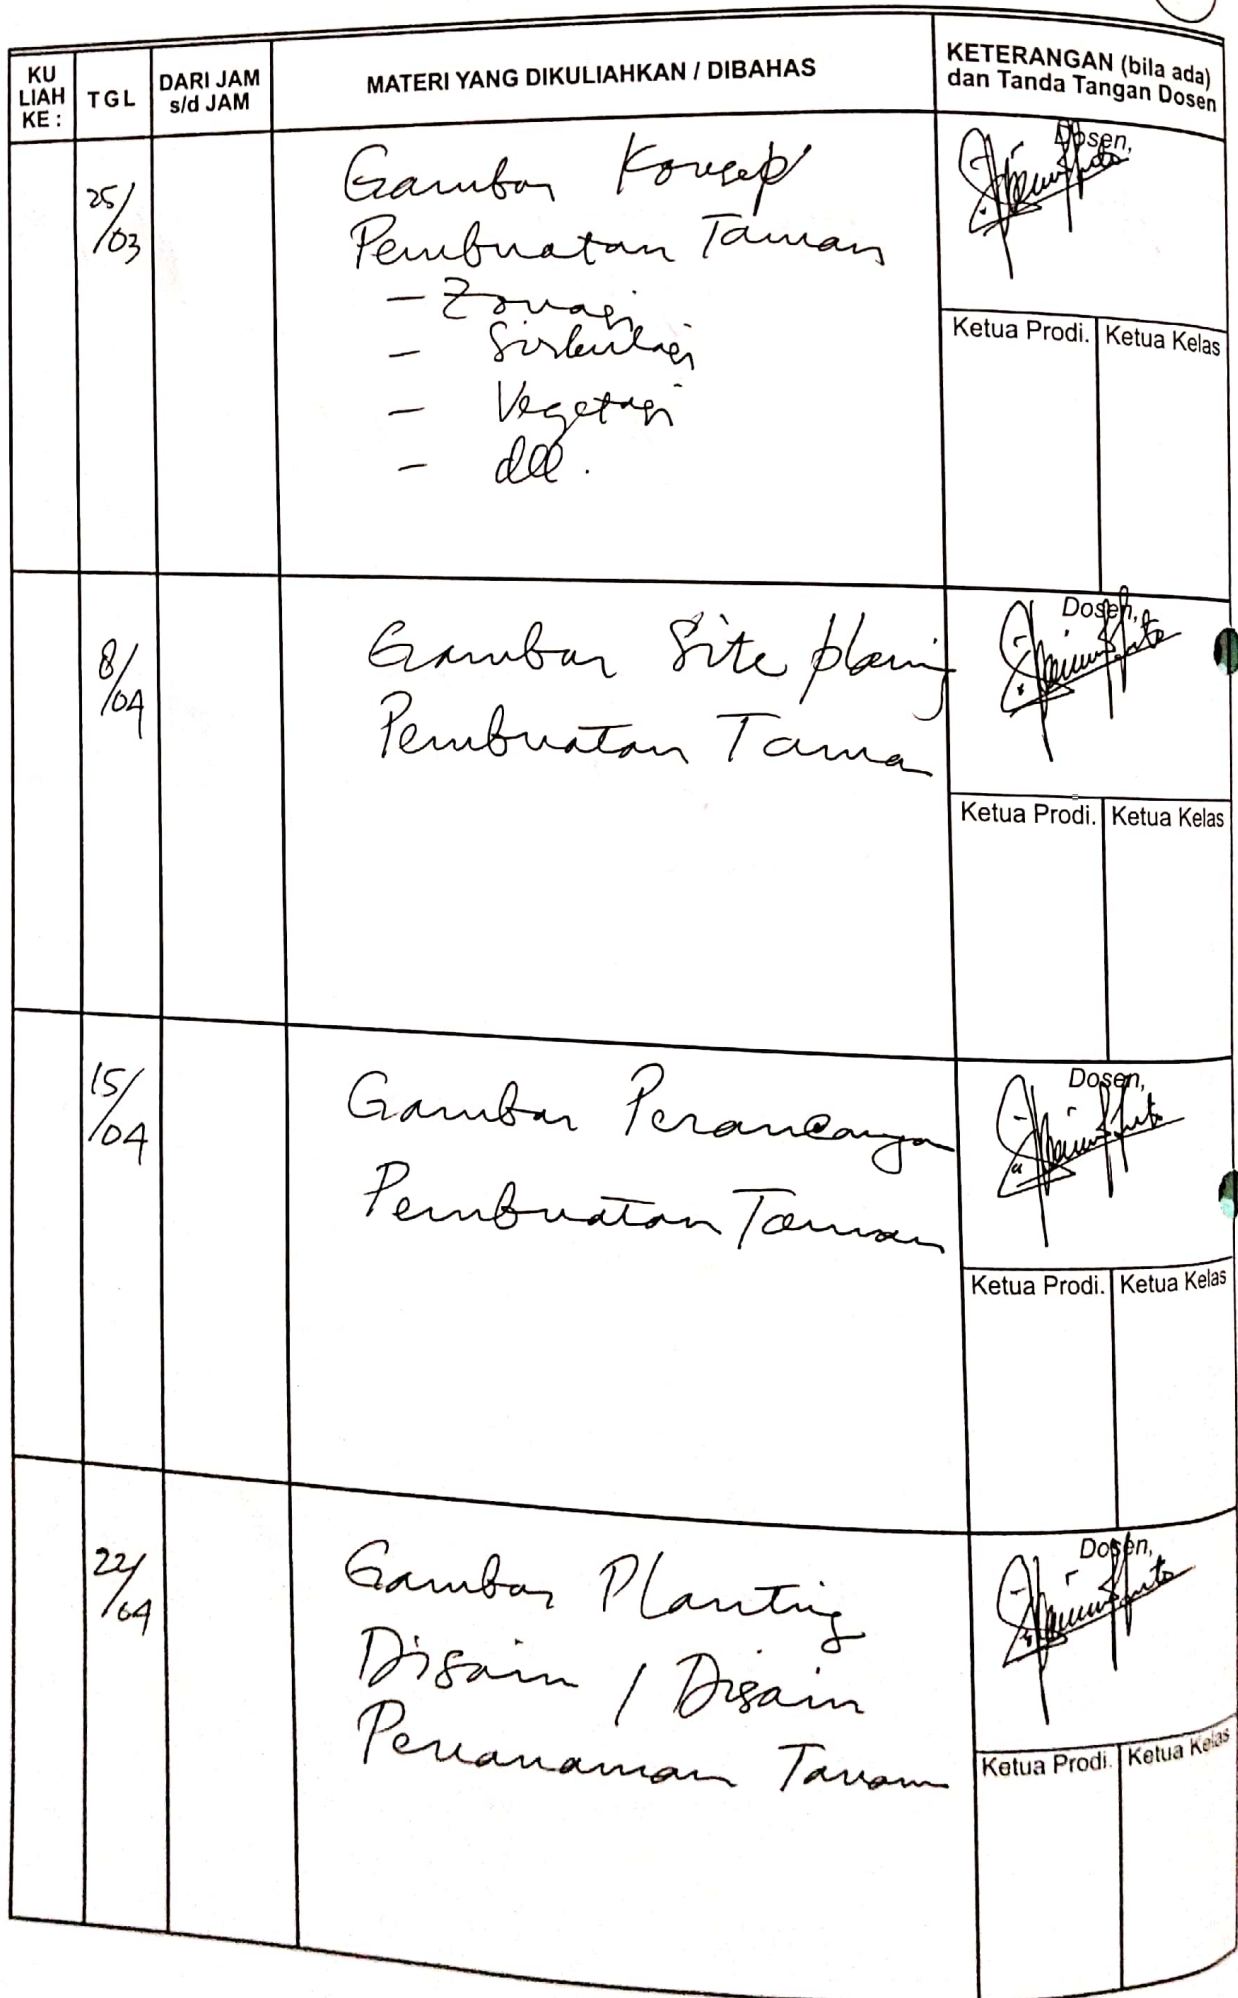 KU LIAH KE :
TGL
DARI JAM s/d JAM
MATERI YANG DIKULIAHKAN / DIBAHAS
KETERANGAN (bila ada)
dan Tanda Tangan Dosen
25/03
Gambar Konsep
Pembuatan Taman
- Zonasi
- Sirkulasi
- Vegetasi
- dll.
Dosen,
Ketua Prodi.
Ketua Kelas
8/04
Gambar Site planing
Pembuatan Tama
Dosen,
Ketua Prodi.
Ketua Kelas
15/04
Gambar Perancangan
Pembuatan Taman
Dosen,
Ketua Prodi.
Ketua Kelas
22/04
Gambar Planting
Disain / Disain
Penanaman
Dosen,
Ketua Prodi.
Ketua Kelas